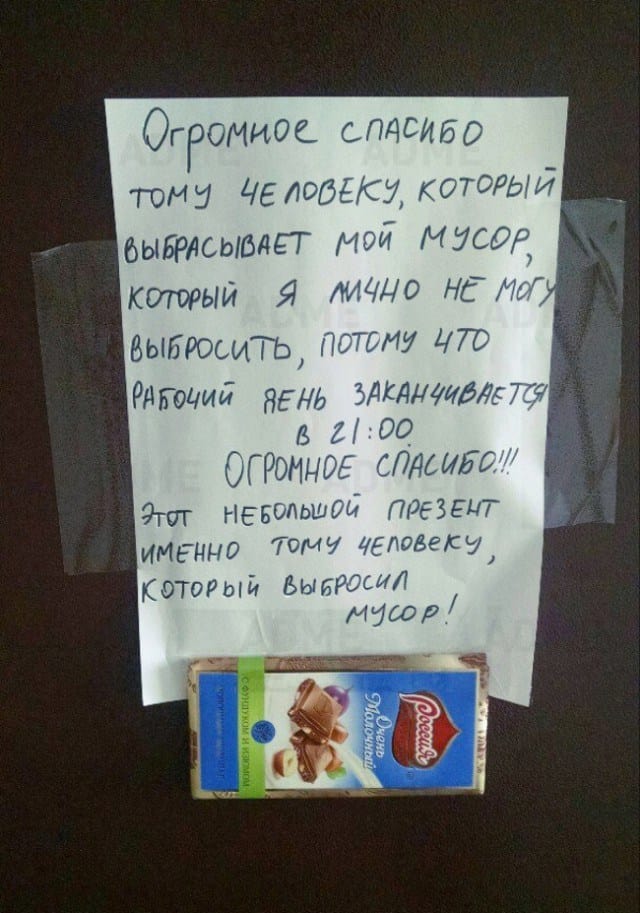 Огромное спасибо
тому человеку, который
выбрасывает мой мусор,
который я лично не могу
выбросить, потому что
рабочий день заканчивается
в 21:00
ОГРОМНОЕ СПАСИБО!!!
Этот небольшой презент
именно тому человеку,
который выбросил
мусор!
Россия
Очень
Молочный
С ФУНДУКОМ И ИЗЮМОМ
ADME